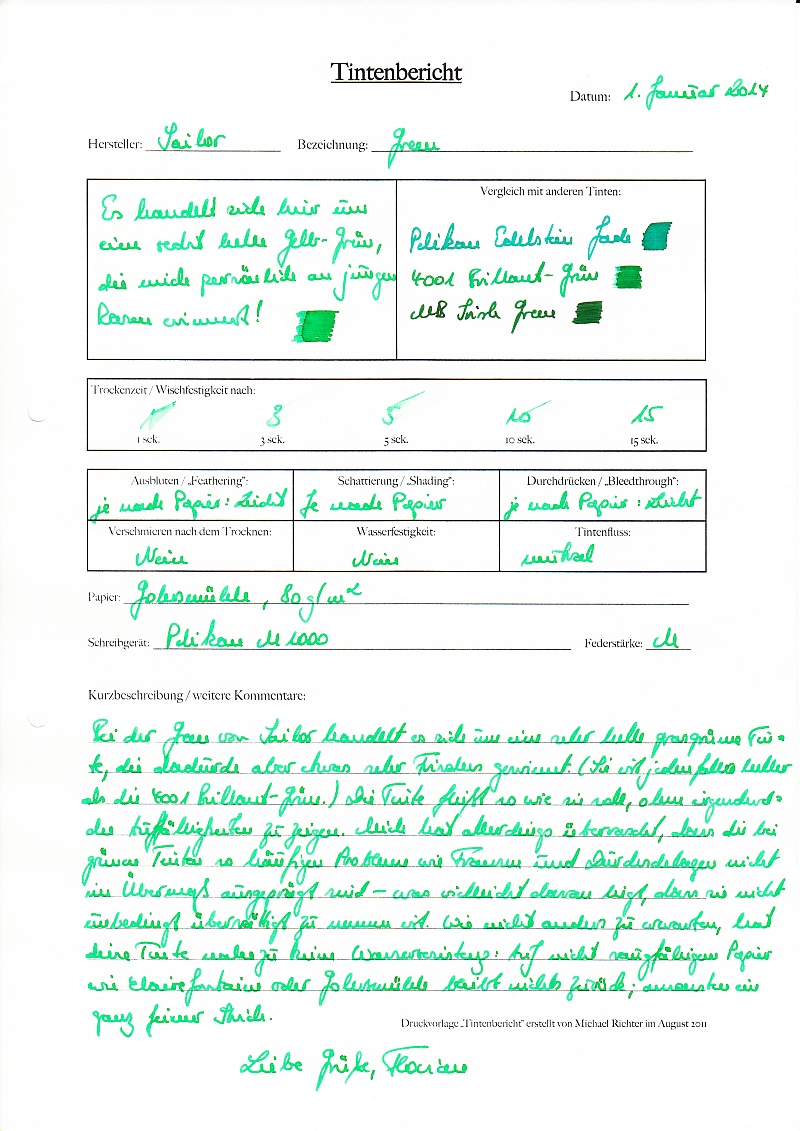 Tintenbericht
Datum: 1. Januar 2014
Hersteller: Sailor Bezeichnung: Green
Es handelt sich hier um
eine recht helle Gelb-Grün,
die mich persönlich an jungen
Rasen erinnert!
Vergleich mit anderen Tinten:
Pelikan Edelstein Jade
4001 Brillant-Grün
MB Irish Green
Trockenzeit / Wischfestigkeit nach:
1 3 5 10 15
1 sek. 3 sek. 5 sek. 10 sek. 15 sek.
Ausbluten / „Feathering": Schattierung / „Shading": Durchdrücken / „Bleedthrough":
je nach Papier: Leicht Je nach Papier je nach Papier: Leicht
Verschmieren nach dem Trocknen: Wasserfestigkeit: Tintenfluss:
Nein Nein
Papier: Gohrsmühle, 80 g/m²
Schreibgerät: Pelikan M 1000 Federstärke: M
Kurzbeschreibung / weitere Kommentare:
Bei der Green von Sailor handelt es sich um eine sehr helle grasgrüne Tin-
te, die dadurch aber etwas sehr Frisches gewinnt. (Sie ist jedenfalls heller
als die 4001 Brillant-Grün.) Die Tinte fließt so wie sie soll, ohne irgendwel-
che Auffälligkeiten zu zeigen. Mich hat allerdings überrascht, dass die bei
grünen Tinten so häufigen Probleme wie Fransen und Durchschlagen nicht
im Übermaß ausgeprägt sind – was vielleicht daran liegt, dass sie nicht
unbedingt übersättigt zu nennen ist. Wie nicht anders zu erwarten, hat
diese Tinte nahezu keine Wasserresistenz: Auf nicht saugfähigem Papier
wie Clairefontaine oder Gohrsmühle bleibt nichts zurück; ansonsten ein
ganz feiner Strich.
Druckvorlage „Tintenbericht" erstellt von Michael Richter im August 2011
Liebe Grüße, Florian